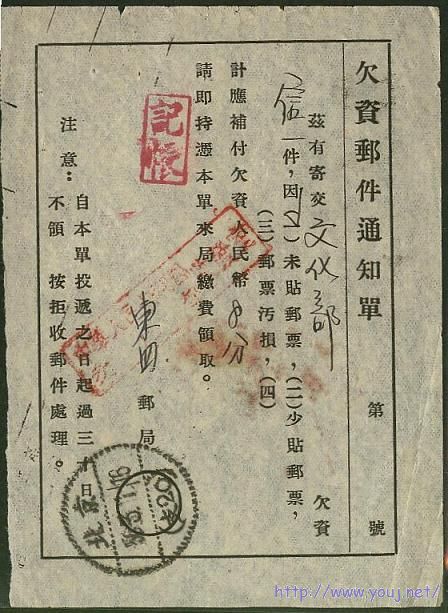 欠資郵件通知單
第 號
茲有寄交文化部 欠資
信一件，因(一)未貼郵票，(二)少貼郵票，
(三)郵票污損，(四)
計應補付欠資人民幣8分
請即持憑本單來局繳費領取。
東四 郵局
注意：自本單投遞之日起過三十日
不領 按拒收郵件處理。
記賬
北京
http://www.youj.net/